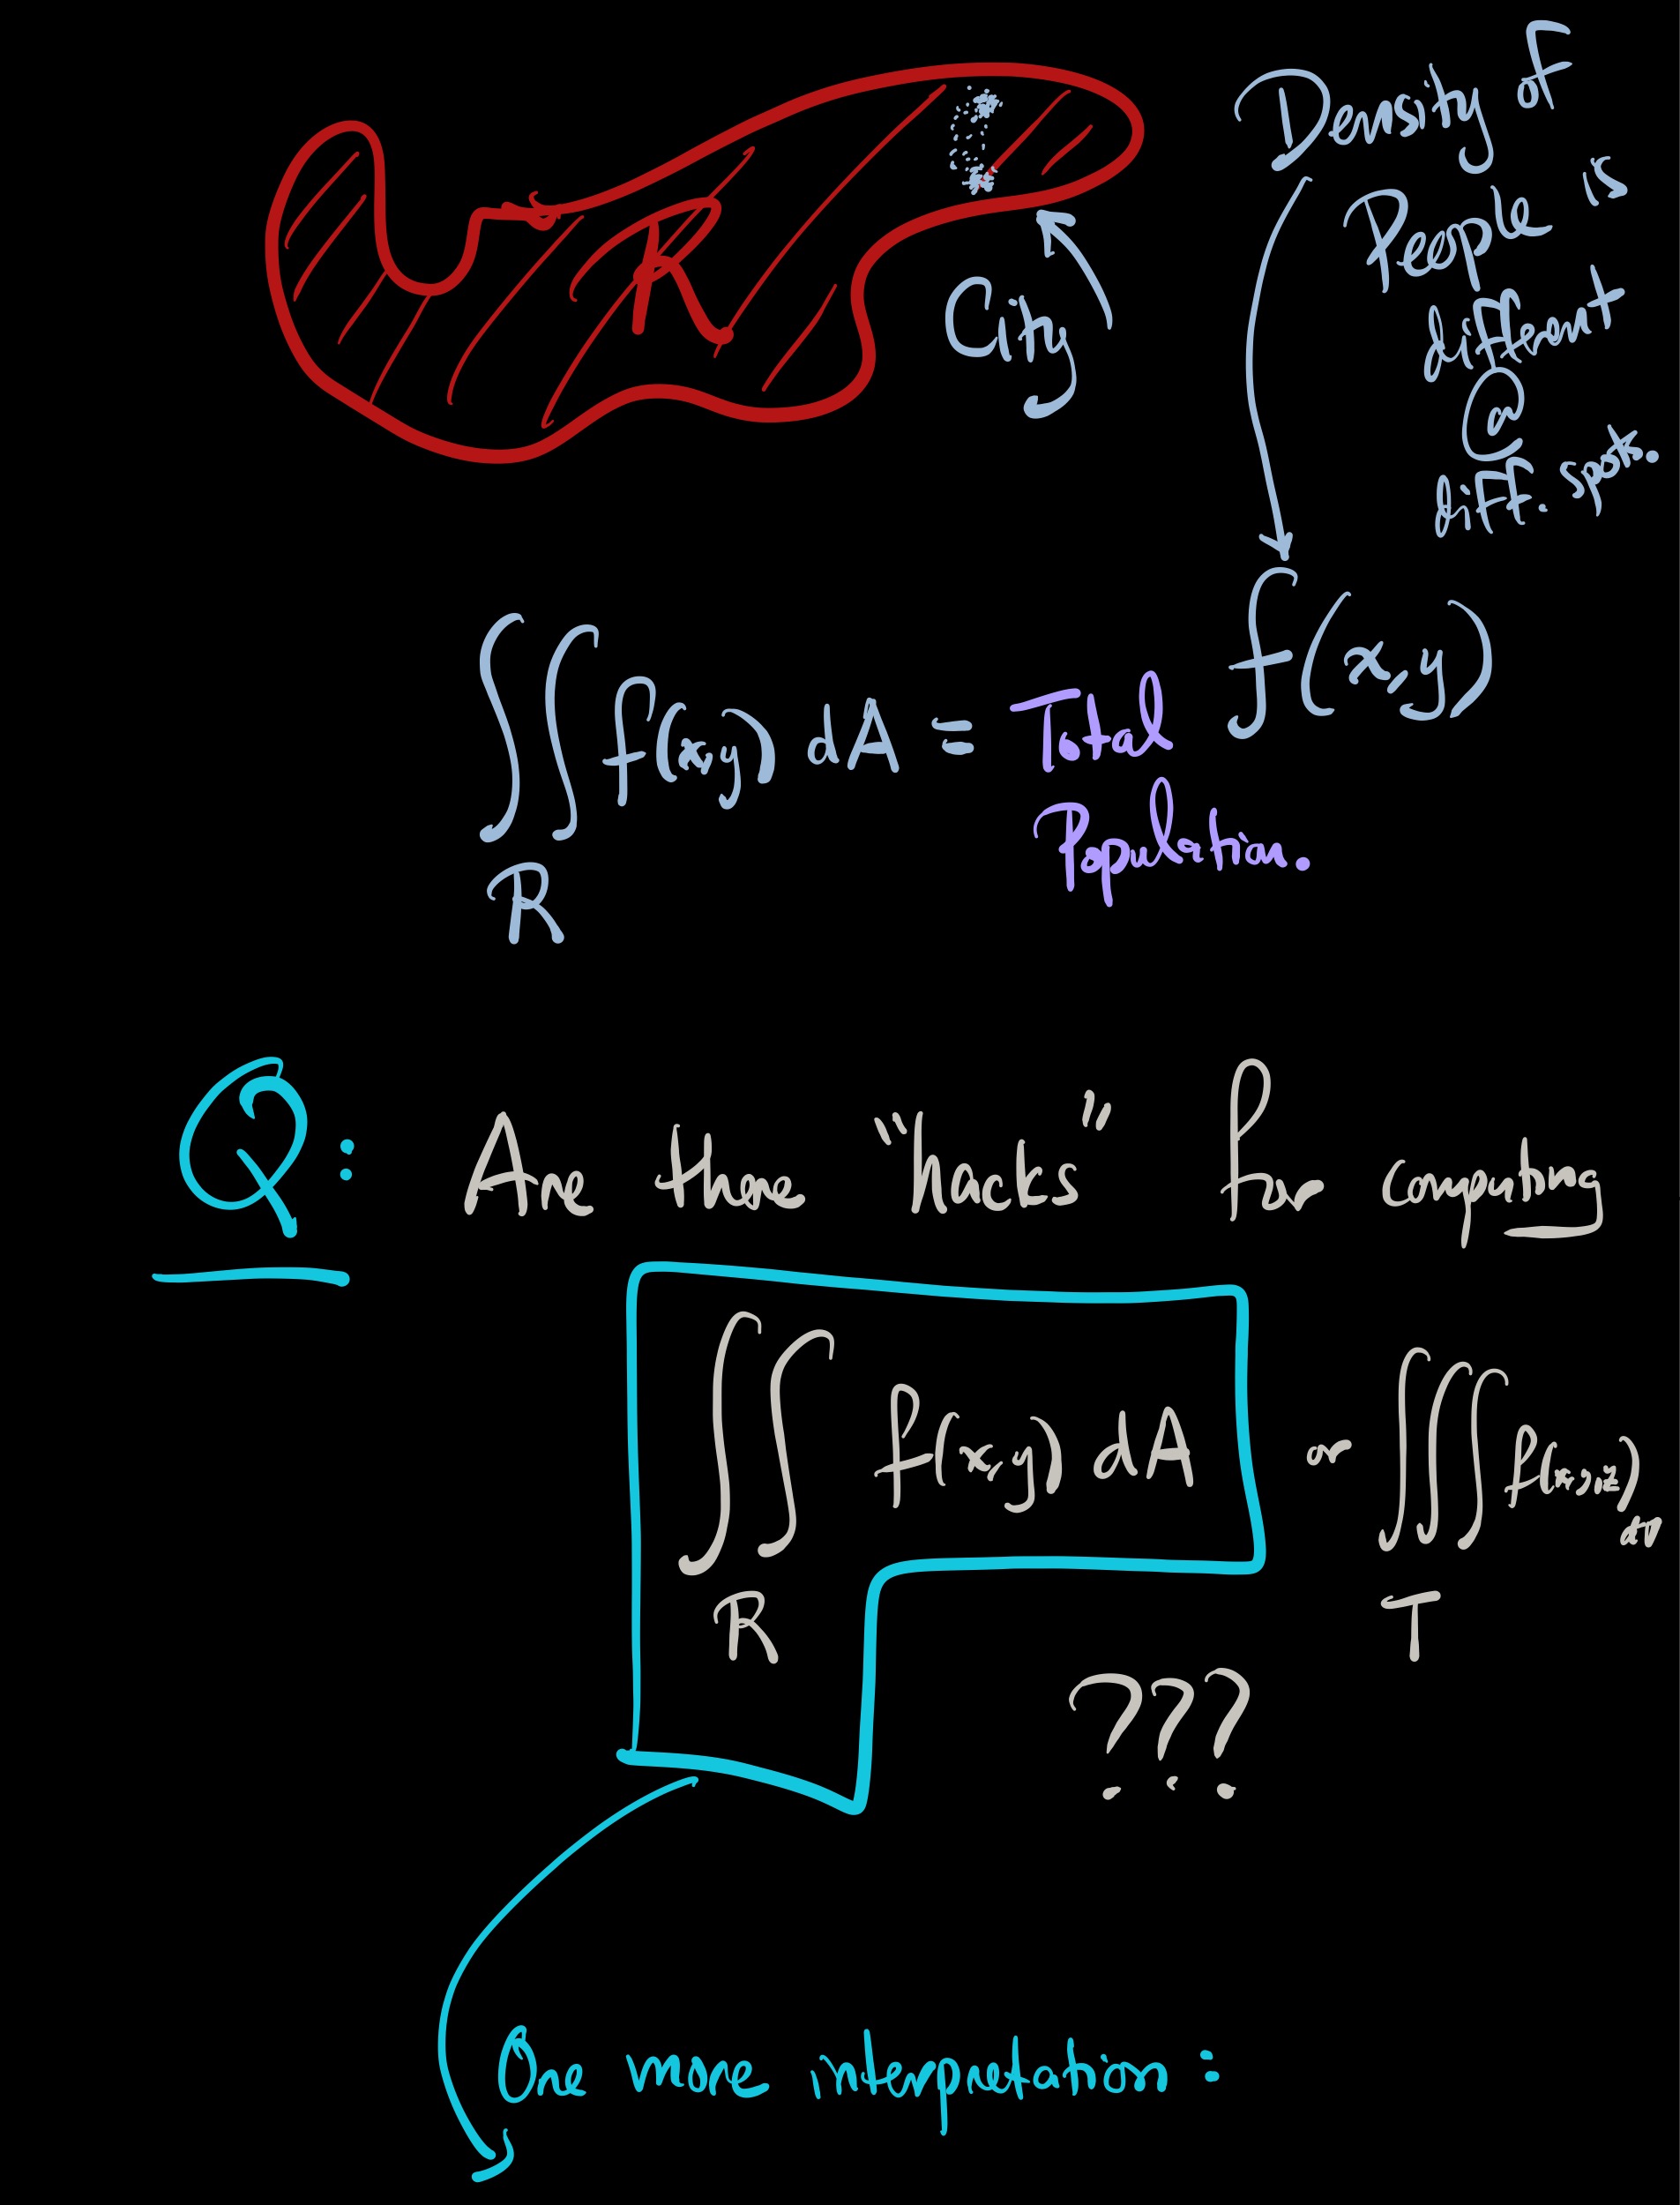 R
City
Density of
People is
different
@
diff. spots.
f(x,y)
∬ f(x,y) dA = Total
Population.
R
Q: Are there "hacks" for computing
∬ f(x,y) dA or ∭ f(x,y,z)
R
T
???
One more interpretation: